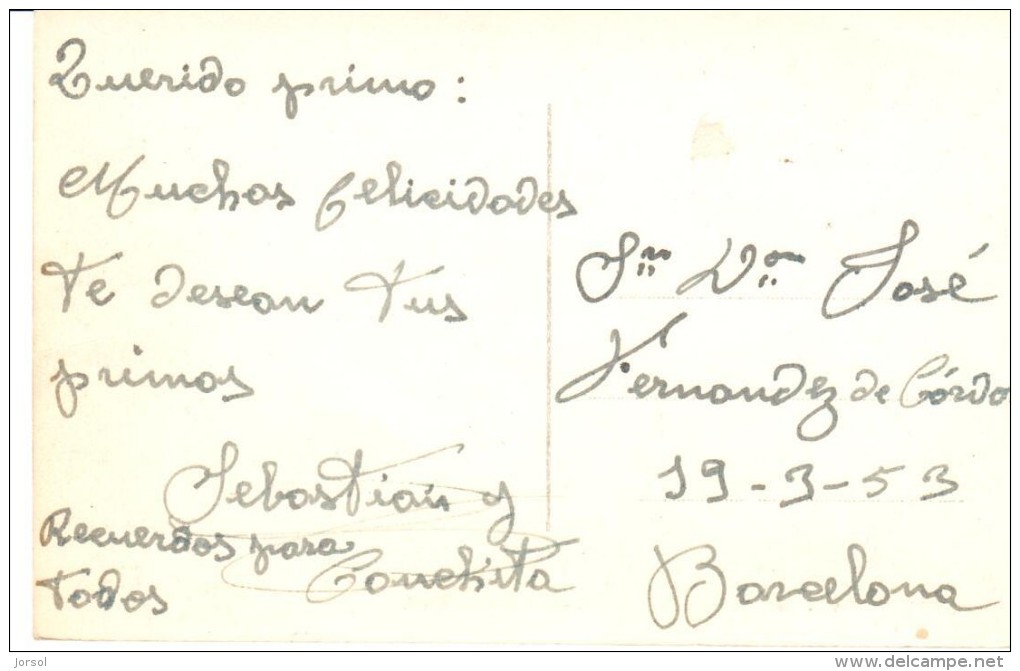 Querido primo:
Muchas felicidades
te desean tus
primos
Sebastián y
Conchita
Recuerdos para
todos
Sr. Don José
Fernandez de Córdo
19-3-53
Barcelona
Jorsol
www.delcampe.net